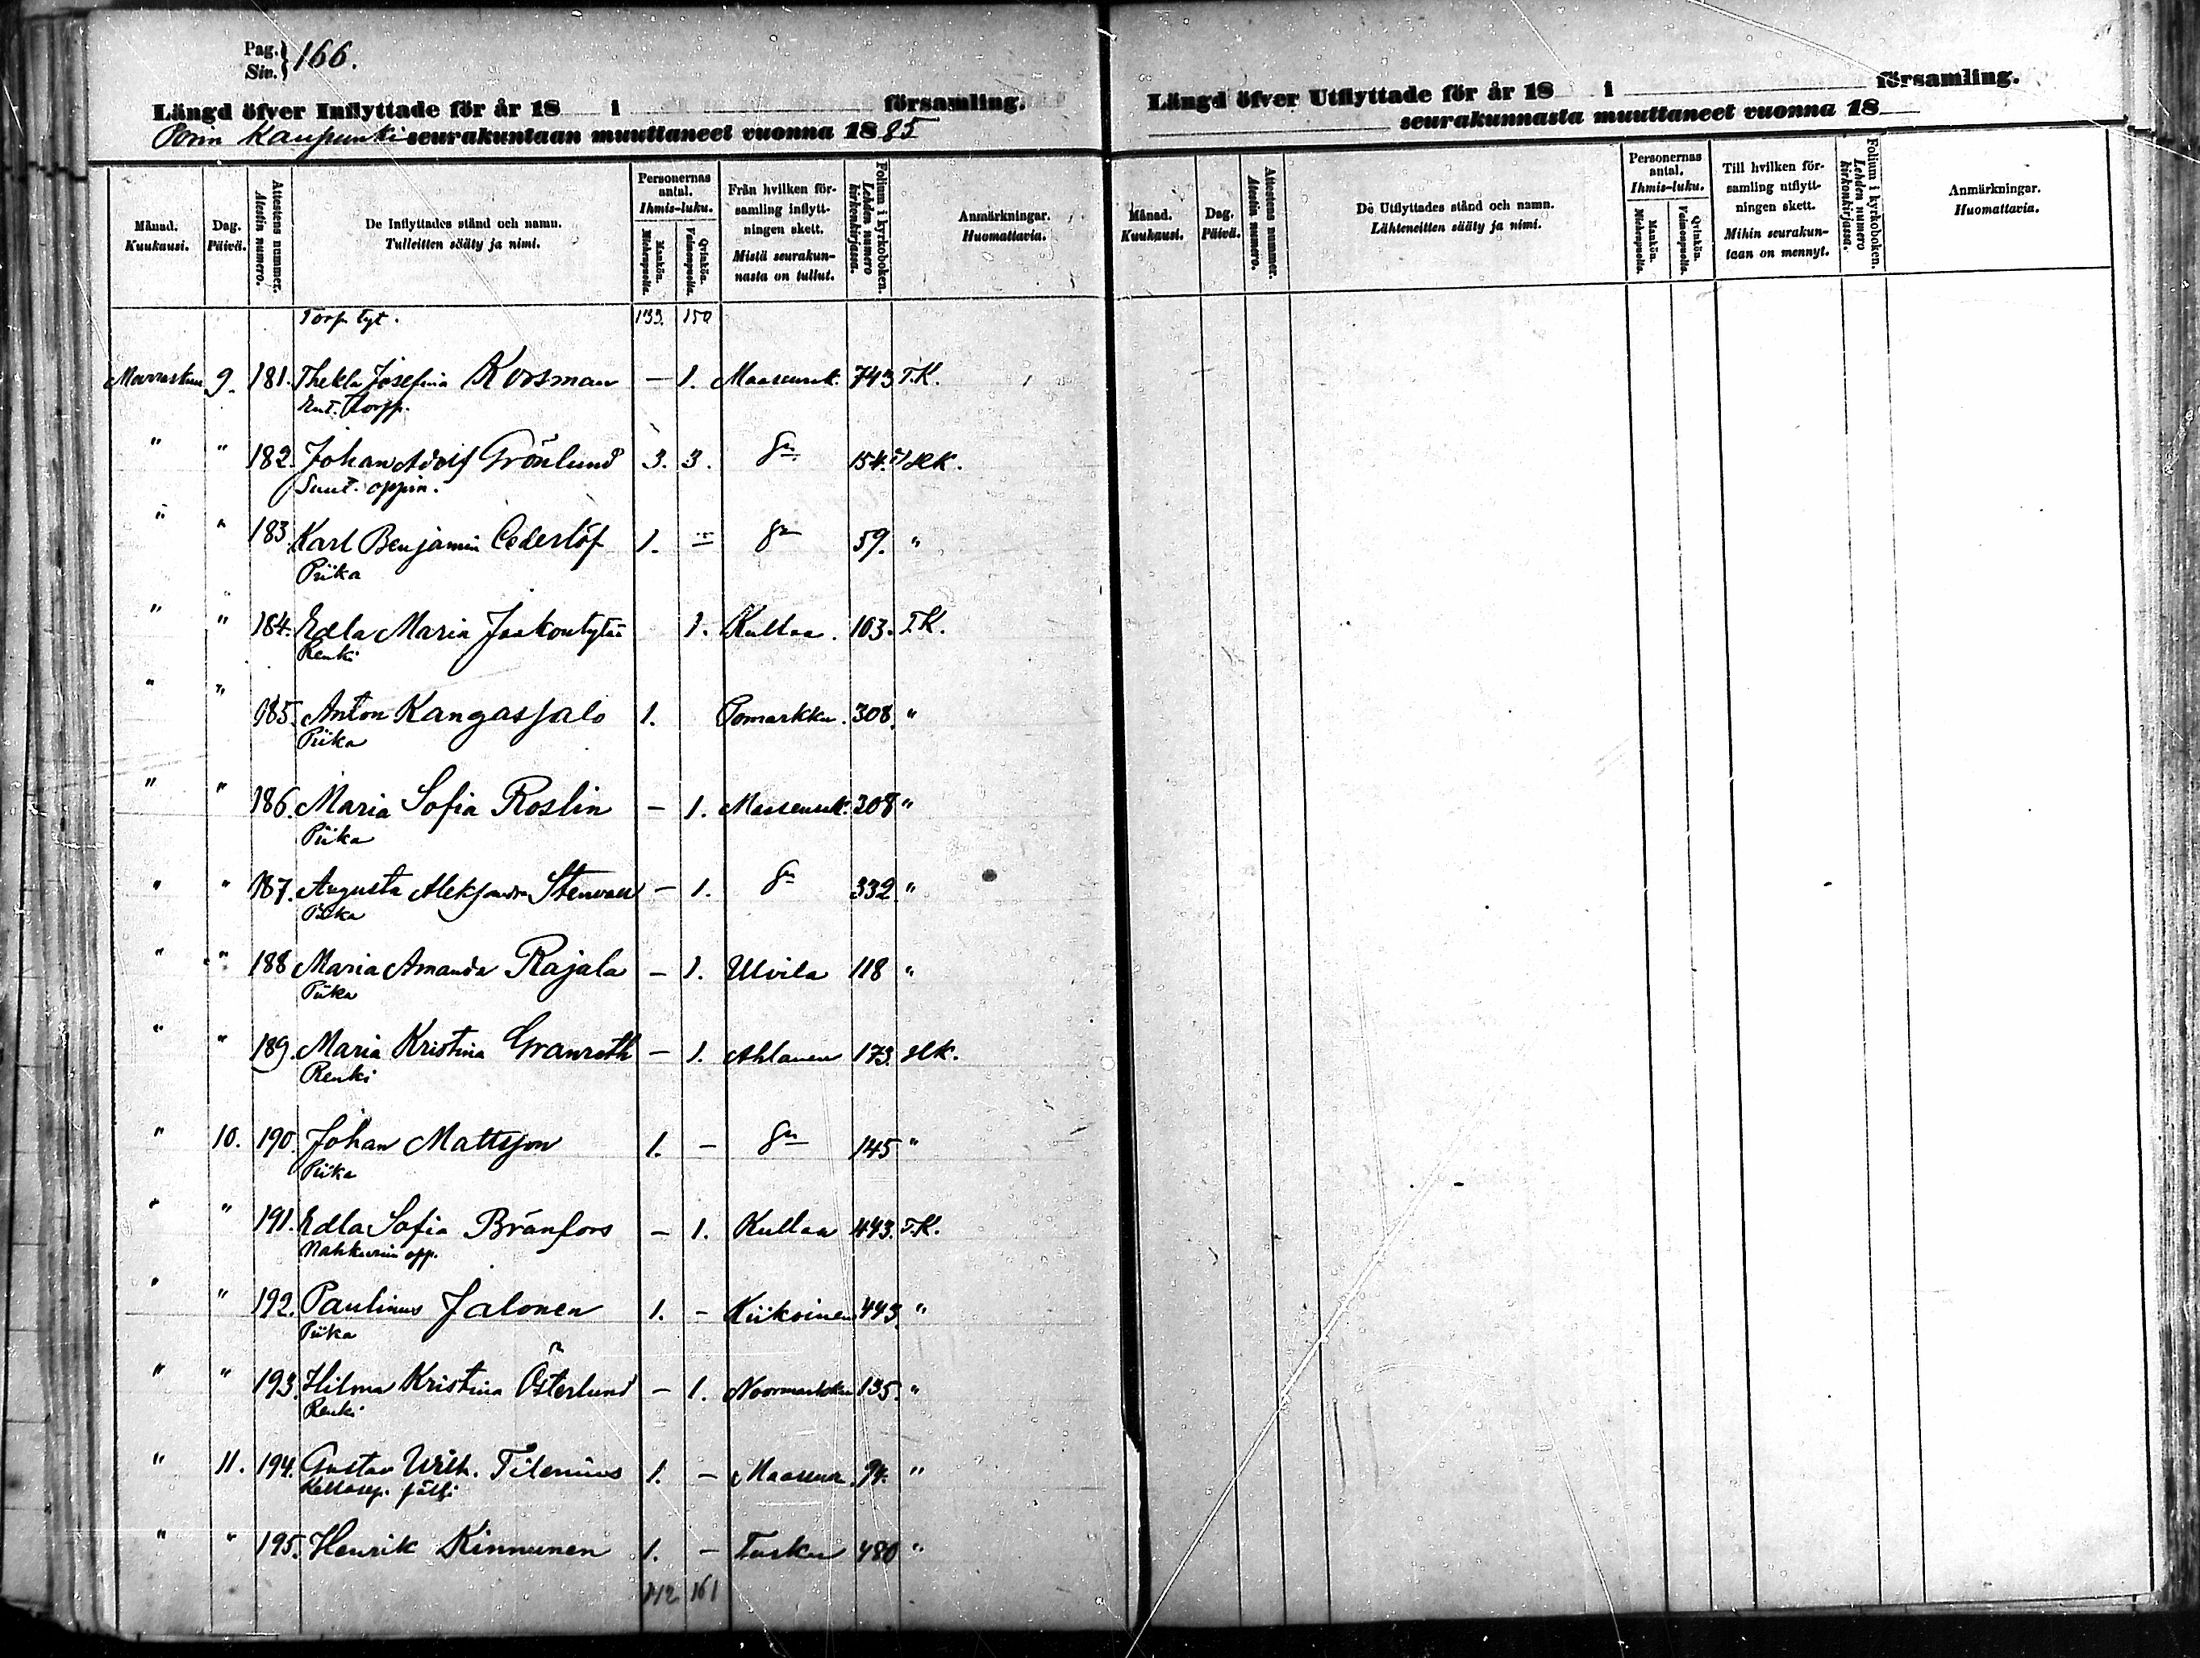 Pag. Siv. } 166.
Längd öfver Inflyttade för år 18 i församling.
Porin Kaupunki seurakuntaan muuttaneet vuonna 1885
Månad. Kuukausi.
Dag. Päivä.
Attestens nummer. Atestin numero.
De Inflyttades stånd och namn. Tulleitten sääty ja nimi.
Personernas antal. Ihmis-luku.
Mankön. Miehenpuolia.
Qvinkön. Vaimonpuolia.
Från hvilken församling inflyttningen skett. Mistä seurakunnasta on tullut.
Folium i kyrkoboken. Lehden numero kirkonkirjassa.
Anmärkningar. Huomattavia.
Torp. tyt. 133. 150
Marraskuu 9. 181. Thekla Josefina Korsman — 1. Maaseurak. 743 T.K.
Ent. Torpp.
" " 182. Johan Adolf Grönlund 3. 3. Sn 154. HK.
Suut. oppin.
" " 183. Karl Benjamin Cederlöf 1. — Sn 59. "
Piika
" " 184. Edla Maria Jaakontytär 1. Kullaa. 103. T.K.
Renki
" " 185. Anton Kangassalo 1. Pomarkku. 308. "
Piika
" " 186. Maria Sofia Roslin — 1. Maaseurak. 308 "
Piika
" " 187. Augusta Aleksandra Stenvall — 1. Sn 332 "
Piika
" " 188 Maria Amanda Rajala — 1. Ulvila 118 "
Piika
" " 189. Maria Kristina Granroth — 1. Ahlainen 173. HK.
Renki
" 10. 190. Johan Mattsson 1. — Sn 145 "
Piika
" " 191. Edla Sofia Bränfors — 1. Kullaa 443. T.K.
Nahkurin opp.
" " 192. Paulinus Jalonen 1. — Kiikoinen 443. "
Piika
" " 193. Hilma Kristina Österlund — 1. Noormarkku 135. "
Renki
" 11. 194. Gustav Wilh. Tilenius 1. — Maaseur. 94. "
Kellosep. sälli
" " 195. Henrik Kinnunen 1. — Turku 480 "
142 161
Längd öfver Utflyttade för år 18 i församling.
seurakunnasta muuttaneet vuonna 18
Månad. Kuukausi.
Dag. Päivä.
Attestens nummer. Atestin numero.
De Utflyttades stånd och namn. Lähteneitten sääty ja nimi.
Personernas antal. Ihmis-luku.
Mankön. Miehenpuolia.
Qvinkön. Vaimonpuolia.
Till hvilken församling utflyttningen skett. Mihin seurakuntaan on mennyt.
Folium i kyrkoboken. Lehden numero kirkonkirjassa.
Anmärkningar. Huomattavia.